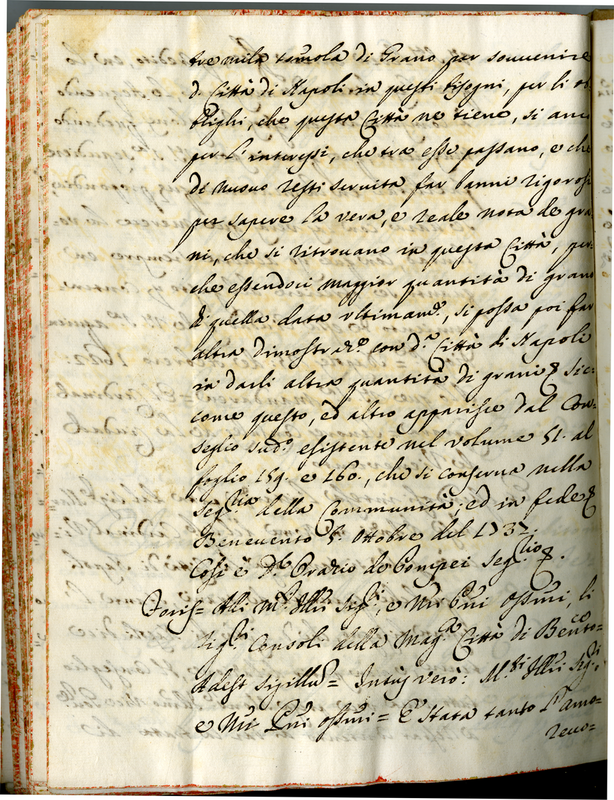 tre mila tomola di Grano per souvenire
d.ª Città di Napoli in questi bisogni, per li ob
blighi, che questa Città ne tiene, si anco
per l'interessi, che tra esse passano, e che
di nuovo resti servita far banni rigorosi
per sapere la vera, e reale nota de gra
ni, che si ritrovano in questa Città, per
che essendoci maggior quantità di grano
di quella data ultimam.e, si possa poi far
altra dimostraz.e con d.ª Città di Napoli
in darli altra quantità di grani & sic=
come questo, ed altro apparisce dal Con=
seglio sud.º esistente nel volume 51. al
foglio 159. e 160., che si conserva nella
Seg.ria della Communità; ed in fede &
Benevento 5. Ottobre del 1737.
Così è D.r Orazio de Pompei Seg.rio &.
Foris= Alli M.ti Ill.ri Sig.ri, e Miei P.ni Oss.mi, li
Sig.ri Consoli della Mag.ca Città di Benev.to=
Adest sigillũ= Intus verò: M.ti Ill.ri Sig.ri
e Miei P.ni Oss.mi= È stata tanto l'amo=
revo=